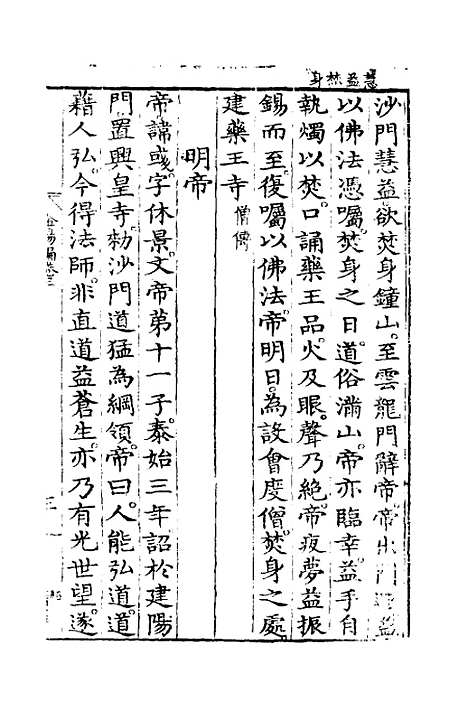 慧益焚身
沙門慧益欲焚身鐘山至雲龍門辭帝帝出門益
以佛法憑囑焚身之日道俗滿山帝亦臨幸益手自
執燭以焚口誦藥王品火及眼聲乃絕帝夜夢益振
錫而至復囑以佛法帝明日為設會度僧焚身之處
建藥王寺 僧傳
明帝
帝諱彧字休景文帝第十一子泰始三年詔於建陽
門置興皇寺勑沙門道猛為綱領帝曰人能弘道道
藉人弘今得法師非直道益蒼生亦乃有光世望遂